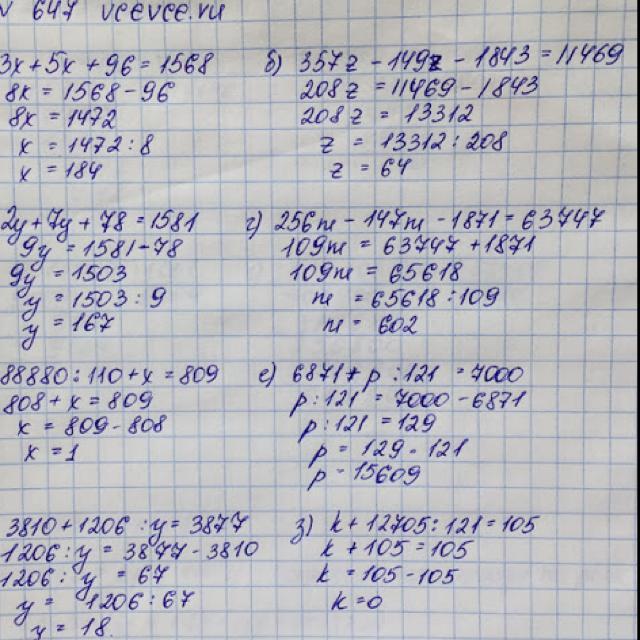 № 647 vcevce.ru
3x + 5x + 96 = 1568
8x = 1568 - 96
8x = 1472
x = 1472 : 8
x = 184
б) 357z - 149z - 1843 = 11469
208z = 11469 - 1843
208z = 13312
z = 13312 : 208
z = 64
2y + 7y + 78 = 1581
9y = 1581 - 78
9y = 1503
y = 1503 : 9
y = 167
г) 256m - 147m - 1871 = 63747
109m = 63747 + 1871
109m = 65618
m = 65618 : 109
m = 602
88880 : 110 + x = 809
808 + x = 809
x = 809 - 808
x = 1
е) 6871 + p : 121 = 7000
p : 121 = 7000 - 6871
p : 121 = 129
p = 129 · 121
p = 15609
3810 + 1206 : y = 3877
1206 : y = 3877 - 3810
1206 : y = 67
y = 1206 : 67
y = 18
з) k + 12705 : 121 = 105
k + 105 = 105
k = 105 - 105
k = 0